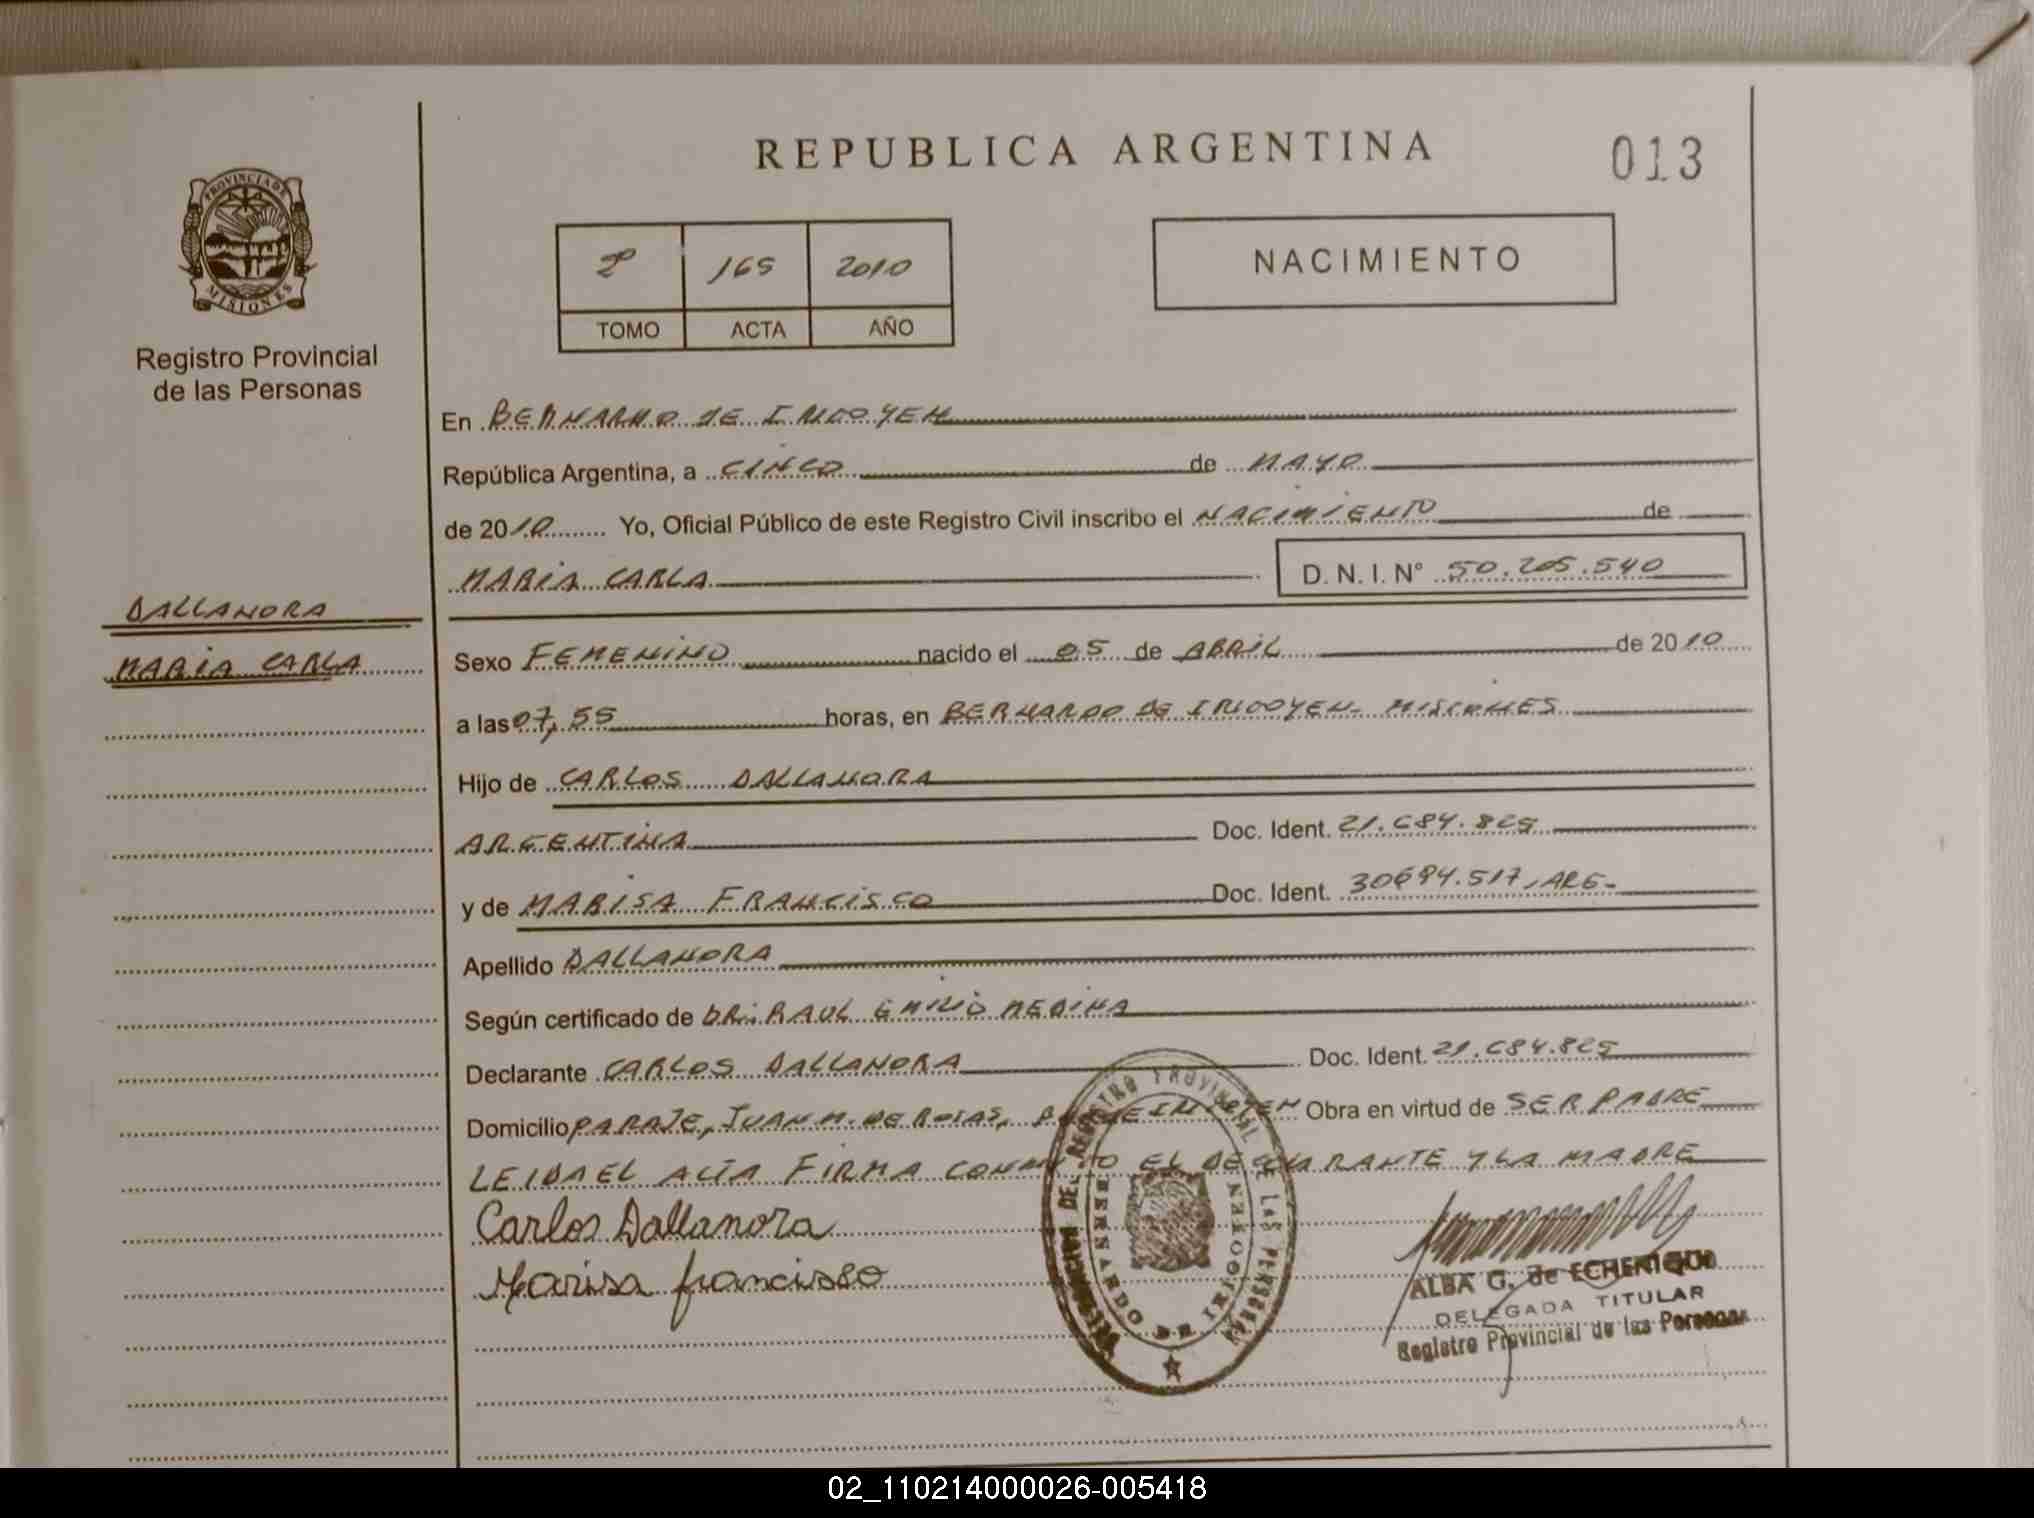 REPUBLICA ARGENTINA
013
PROVINCIA DE
MISIONES
Registro Provincial
de las Personas
2º 165 2010
TOMO ACTA AÑO
NACIMIENTO
En BERNARDO DE IRIGOYEN
República Argentina, a CINCO de MAYO
de 2010 Yo, Oficial Público de este Registro Civil inscribo el NACIMIENTO de
MARIA CARLA D. N. I. Nº 50.205.540
DALLANORA
MARIA CARLA
Sexo FEMENINO nacido el 05 de ABRIL de 2010
a las 07,55 horas, en BERNARDO DE IRIGOYEN- MISIONES
Hijo de CARLOS DALLANORA
ARGENTINA Doc. Ident. 21.684.825
y de MARISA FRANCISCO Doc. Ident. 30694.517, ARG-
Apellido DALLANORA
Según certificado de DR: RAUL EMILIO MEDINA
Declarante CARLOS DALLANORA Doc. Ident. 21.684.825
Domicilio PARAJE, JUAN M. DE ROSAS, Obra en virtud de SER PADRE
LEIDA EL ACTA FIRMA CONMIGO EL DECLARANTE Y LA MADRE
Carlos Dallanora
Marisa francisco
REGISTRO PROVINCIAL DE LAS PERSONAS
BERNARDO DE IRIGOYEN
ALBA G. de ECHENIQUE
DELEGADA TITULAR
Registro Provincial de las Personas
02_110214000026-005418